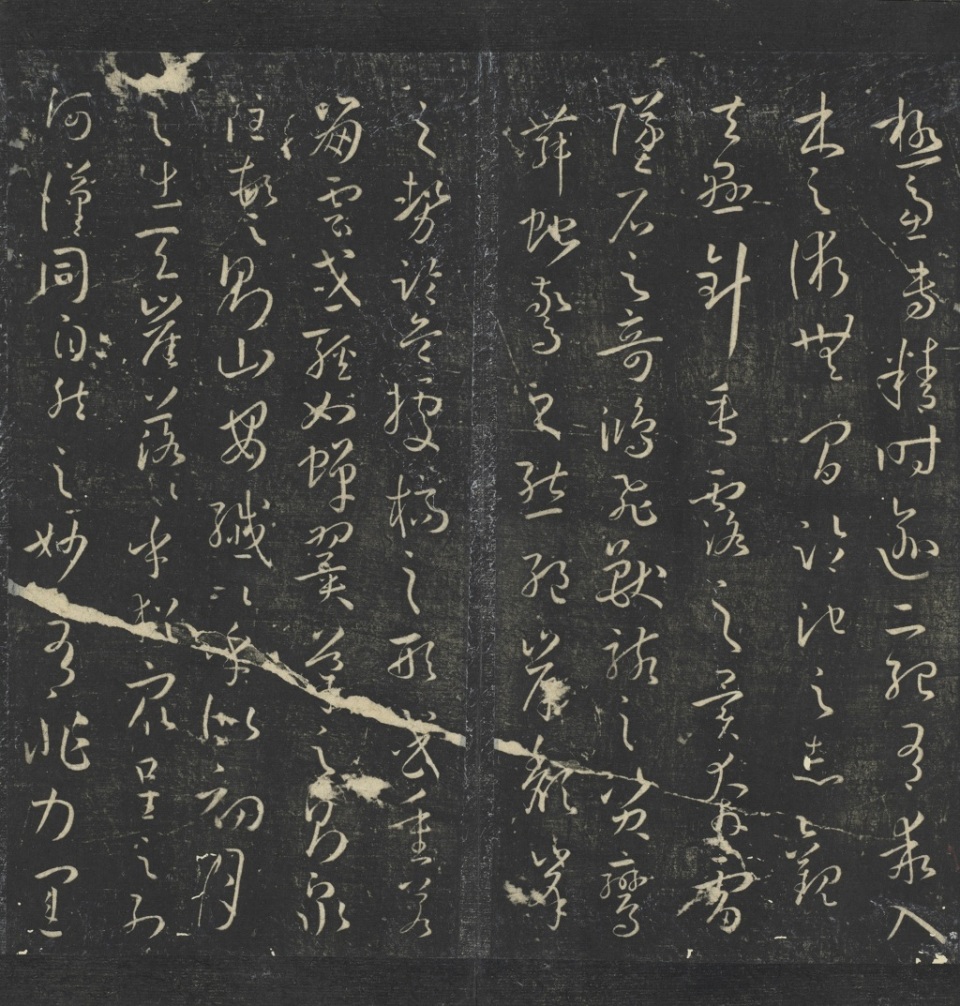 極慮專精時逾二紀有乖入
木之術無間臨池之志觀
夫懸針垂露之異奔雷
墜石之奇鴻飛獸駭之資鸞
舞蛇驚之態絕岸頹峰
之勢臨危據槁之形或重若
崩雲或輕如蟬翼導之則泉
注頓之則山安纖纖乎似初月
之出天崖落落乎猶眾星之列
河漢同自然之妙有非力運